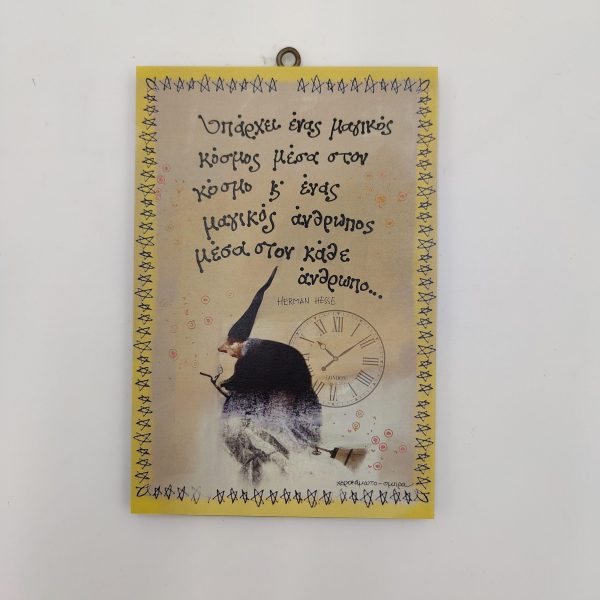 Υπάρχει ένας μαγικός
κόσμος μέσα στον
κόσμο κ' ένας
μαγικός άνθρωπος
μέσα στον κάθε
άνθρωπο...
HERMAN HESSE
XII
LONDON
χειροποίητο - σμυρα